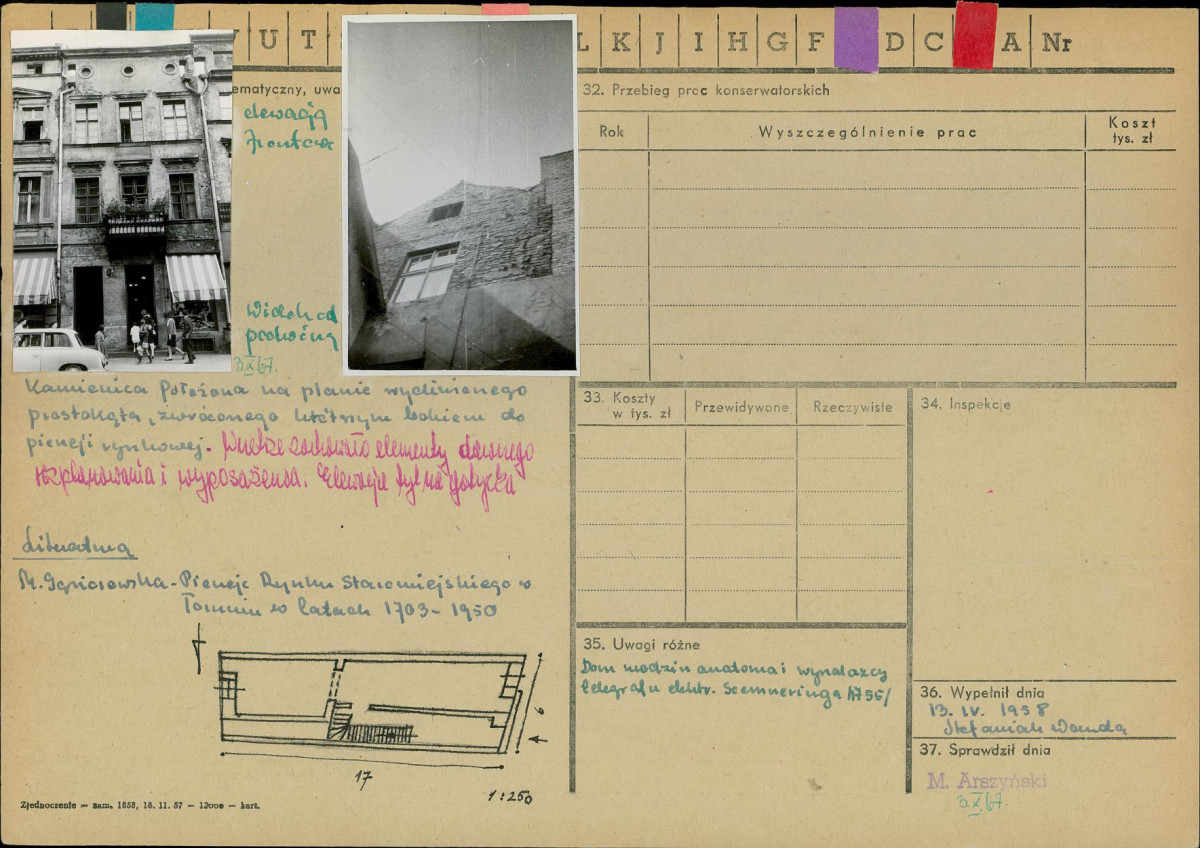 U T L K J I H G F D C A Nr
ematyczny, uwa
elewacją
frontow
Widok od
podwórza
3.X.67.
Kamienica położona na planie wydłużonego
prostokąta, zwróconego krótszym bokiem do
pierzei rynkowej. Wnętrze zachowało elementy dawnego
rozplanowania i wyposażenia. Elewacja tylna gotycka
Literatura
Pierzeje Rynku Staromiejskiego w
Toruniu w latach 1703 - 1950
6
17
1:250
Zjednoczenie — zam. 1858, 18. 11. 57 — 12000 — kart.
32. Przebieg prac konserwatorskich
Rok Wyszczególnienie prac Koszt
tys. zł
33. Koszty
w tys. zł Przewidywane Rzeczywiste
34. Inspekcje
35. Uwagi różne
Dom rodzin anatoma i wynalazcy
telegrafu elektr. Soemmeringa /1755/
36. Wypełnił dnia
13. IV. 1958
Stefaniak Wanda
37. Sprawdził dnia
M. Arszyński
3.X.67.